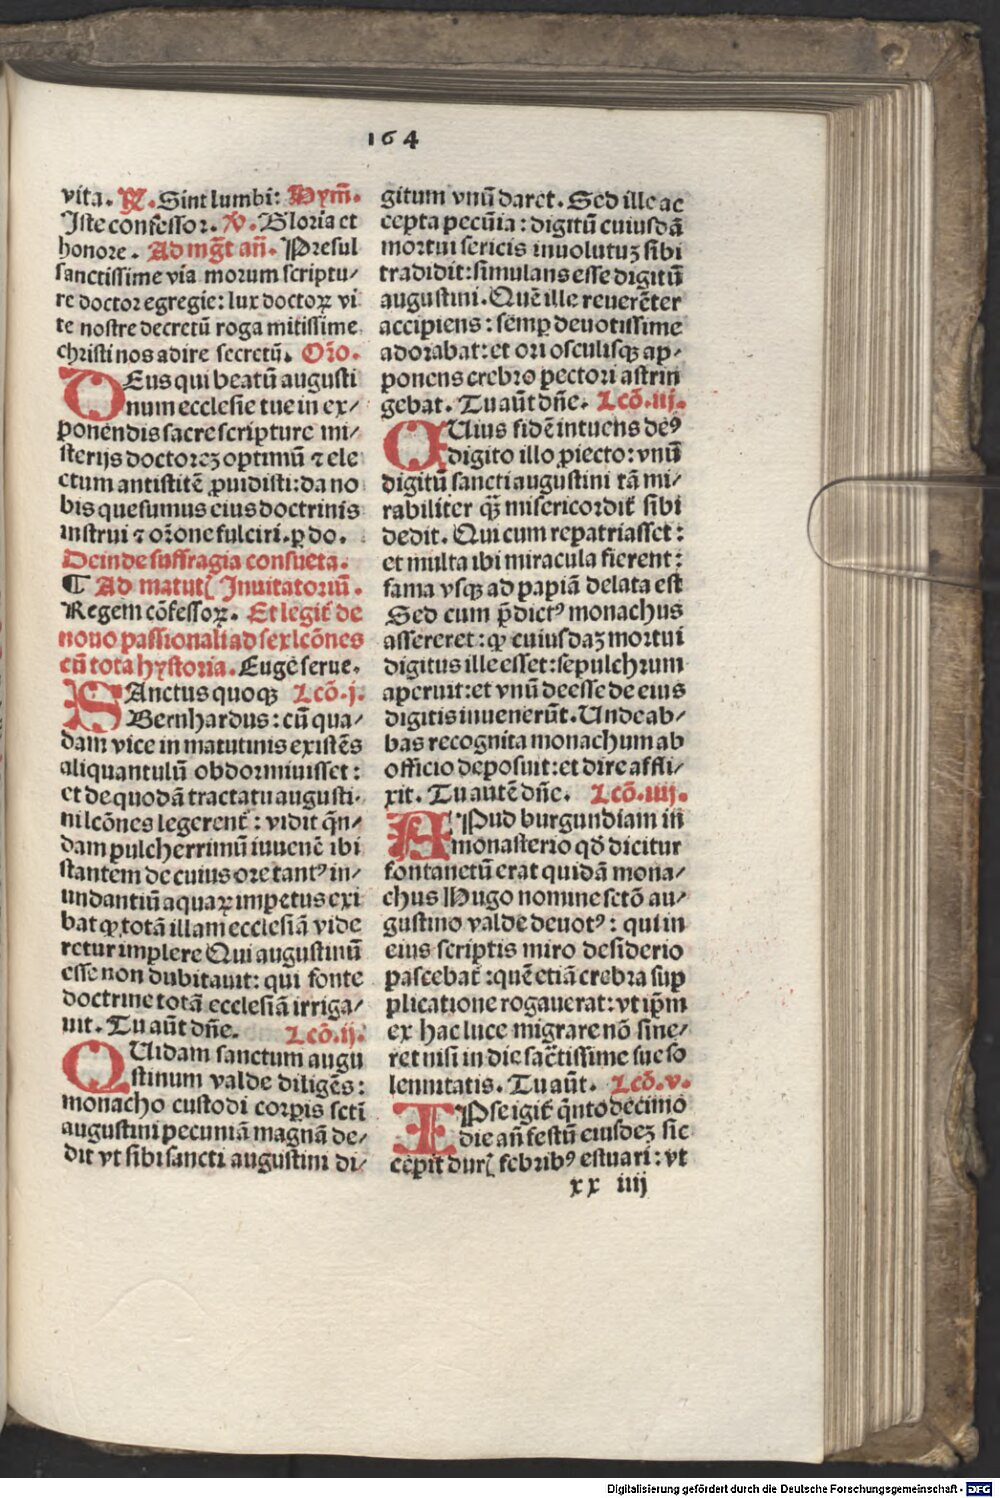 164
vita. ℟. Sint lumbi: Hym̄.
Iste confessor. ℣. Gloria et
honore. Ad mg̅t an̄. Presul
sanctissime via morum scriptu/
re doctor egregie: lux doctoꝝ vi
te nostre decretū roga mitissime
christi nos adire secretū. Oro̅.
DEus qui beatū augusti
num ecclesie tue in ex/
ponendis sacre scripture mi/
sterijs doctorez optimū ⁊ ele
ctum antistitē ꝓuidisti: da no
bis quesumus eius doctrinis
instrui ⁊ oro̅ne fulciri. ꝑ do.
Deinde suffragia consueta.
¶ Ad matut᷑ Inuitatoriū.
Regem cōfessoꝝ. Et legit᷑ de
nouo passionali ad sex lcōnes
cū tota hystoria. Euge serue.
SAnctus quoqꝫ Lcō.j.
Bernhardus: cū qua/
dam vice in matutinis existēs
aliquantulū obdormiuisset:
et de quodā tractatu augusti/
ni lcōnes legerent᷑: vidit qn̄/
dam pulcherrimū iuuenē ibi
stantem de cuius ore tantꝰ in/
undantiū aquaꝝ impetus exi
bat ꝙ totā illam ecclesiā vide
retur implere Qui augustinū
esse non dubitauit: qui fonte
doctrine totā ecclesiā irriga/
uit. Tu aūt dn̄e. Lcō.ij.
QUidam sanctum augu
stinum valde diligēs:
monacho custodi corꝑis scti̅
augustini pecuniā magnā de/
dit vt sibi sancti augustini di/
gitum vnū daret. Sed ille ac
cepta pecūia: digitū cuiusdā
mortui sericis inuolutuz sibi
tradidit: simulans esse digitū
augustini. Quē ille reuerēter
accipiens: semꝑ deuotissime
adorabat: et ori osculisqꝫ ap/
ponens crebro pectori astrin
gebat. Tu aūt dn̄e. Lcō.iij.
CUius fidē intuens deꝰ
digito illo ꝓiecto: vnū
digitū sancti augustini tā mi/
rabiliter qꝫ̄ misericordit᷑ sibi
dedit. Qui cum repatriasset:
et multa ibi miracula fierent:
fama vsqꝫ ad papiā delata est
Sed cum p̄dictꝰ monachus
assereret: ꝙ cuiusdaz mortui
digitus ille esset: sepulchrum
aperuit: et vnū deesse de eius
digitis inuenerūt. Unde ab/
bas recognita monachum ab
officio deposuit: et dire affli/
xit. Tu autē dn̄e. Lcō.iiij.
APud burgundiam in
monasterio qd̄ dicitur
fontanetū erat quidā mona/
chus Hugo nomine sctō au/
gustino valde deuotꝰ: qui in
eius scriptis miro desiderio
pascebat᷑: quē etiā crebra sup
plicatione rogauerat: vt ip̄m
ex hac luce migrare nō sine/
ret nisi in die sac̄tissime sue so
lennitatis. Tu aūt. Lcō.v.
IPse igit᷑ qn̄to decimo
die an̄ festū eiusdez sic
cepit dur᷑ febribꝰ estuari: vt
xx iiij
Digitalisierung gefördert durch die Deutsche Forschungsgemeinschaft - DFG